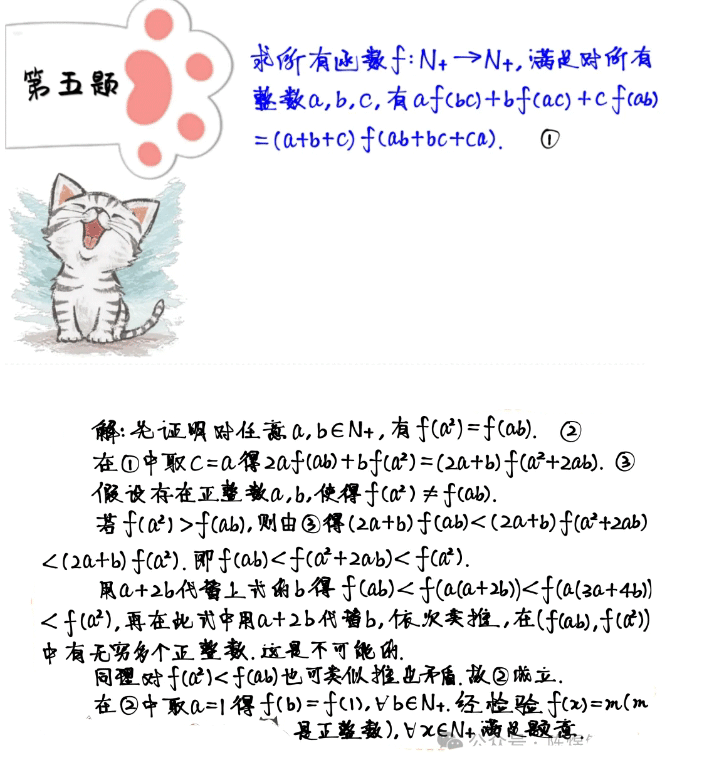 第五题
求所有函数f:N₊→N₊,满足对所有
整数a,b,c,有af(bc)+bf(ac)+cf(ab)
=(a+b+c)f(ab+bc+ca). ①
解:先证明对任意a,b∈N₊,有f(a²)=f(ab). ②
在①中取c=a得2af(ab)+bf(a²)=(2a+b)f(a²+2ab). ③
假设存在正整数a,b,使得f(a²)≠f(ab).
若f(a²)>f(ab),则由③得(2a+b)f(ab)<(2a+b)f(a²+2ab)
<(2a+b)f(a²).即f(ab)<f(a²+2ab)<f(a²).
用a+2b代替上式的b得f(ab)<f(a(a+2b))<f(a(3a+4b))
<f(a²),再在此式中用a+2b代替b,依次类推,在(f(ab),f(a²))
中有无穷多个正整数.这是不可能的.
同理对f(a²)<f(ab)也可类似推出矛盾.故②成立.
在②中取a=1得f(b)=f(1),∀b∈N₊.经检验f(x)=m(m
是正整数),∀x∈N₊满足题意.
公众号·